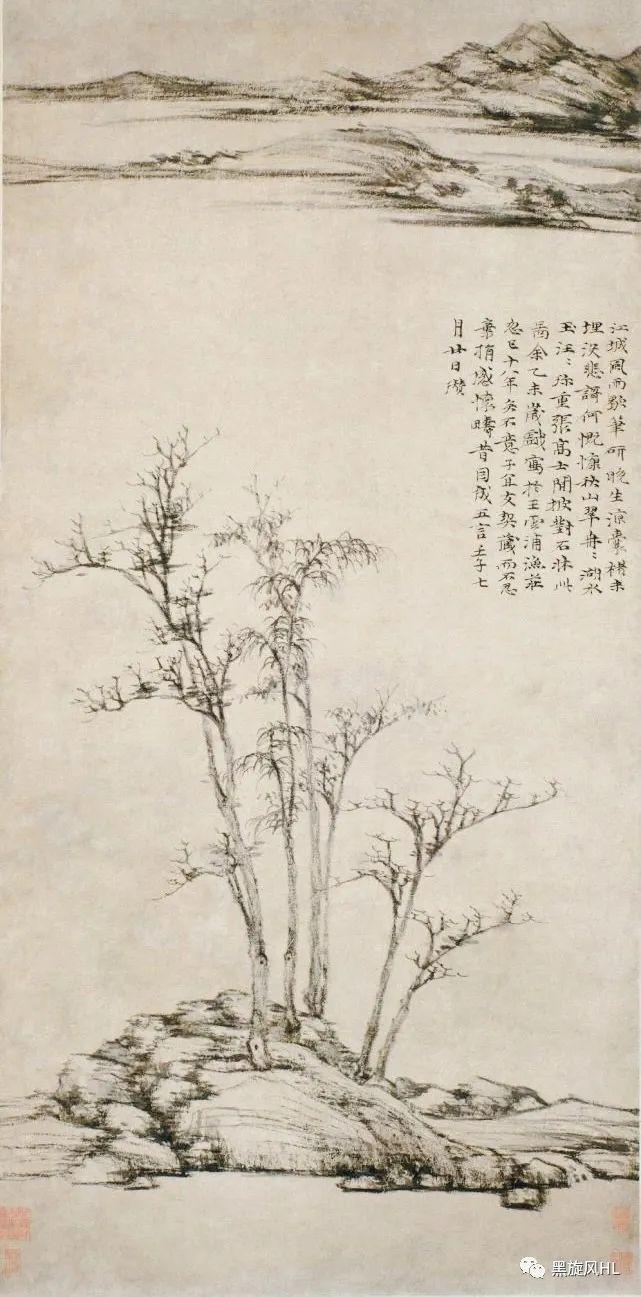 江城風雨歇筆研晚生涼囊楮未
埋沒悲謌何慨慷秋山翠冉〻湖水
玉汪〻珍重張高士閒披對石牀此
啚余乙未歲戲寫於王雲浦漁莊
忽已十八年矣不意子宜友契藏而不忍
棄捐感懷疇昔因成五言壬子七
月廿日瓚
黑旋风HL